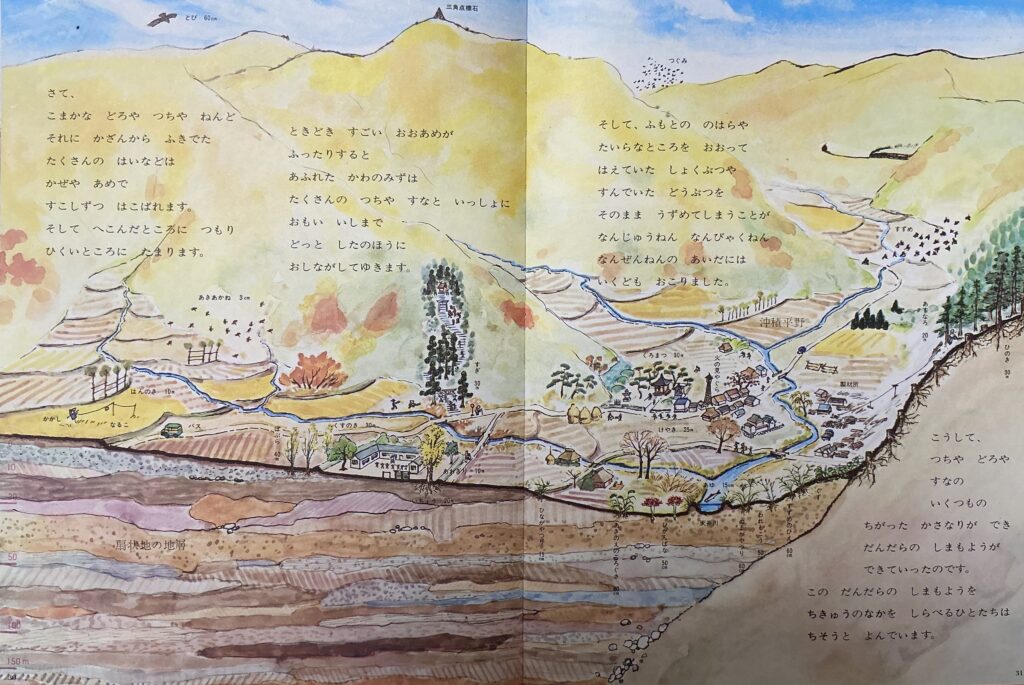 さて、
こまかな どろや つちや ねんど
それに かざんから ふきでた
たくさんの はいなどは
かぜや あめで
すこしずつ はこばれます。
そして へこんだところに つもり
ひくいところに たまります。
ときどき すごい おおあめが
ふったりすると
あふれた かわのみずは
たくさんの つちや すなと いっしょに
おもい いしまで
どっと したのほうに
おしながしてゆきます。
そして、ふもとの のはらや
たいらなところを おおって
はえていた しょくぶつや
すんでいた どうぶつを
そのまま うずめてしまうことが
なんじゅうねん なんびゃくねん
なんぜんねんの あいだには
いくども おこりました。
こうして、
つちや どろや
すなの
いくつもの
ちがった かさなりが でき
だんだらの しまもようが
できていったのです。
この だんだらの しまもようを
ちきゅうのなかを しらべるひとたちは
ちそうと よんでいます。
とび 60cm
三角点標石
つぐみ
すずめ
あきあかね 3cm
はんのき 10m
かがし
なるこ
バス
くすのき 30m
すぎ 30m
くろまつ 30m
火の見やぐら
けやき 25m
製材所
沖積平野
ひのき 30m
扇状地の地層
10
50
100
150m
31